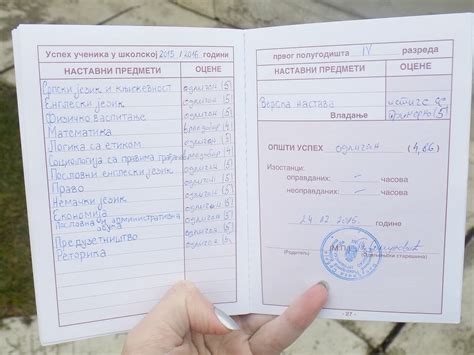 Успех ученика у школској 2015/2016. години
НАСТАВНИ ПРЕДМЕТИ ОЦЕНЕ
Српски језик и књижевност одличан (5)
Енглески језик одличан (5)
Физичко васпитање одличан (5)
Математика врлодобар (4)
Логика са етиком одличан (5)
Социологија са правима грађана врлодобар (4)
Пословни енглески језик одличан (5)
Право одличан (5)
Немачки језик одличан (5)
Економија одличан (5)
Пословна и административна
обука одличан (5)
Предузетништво одличан (5)
Реторика одличан (5)
првог полугодишта IV разреда
НАСТАВНИ ПРЕДМЕТИ ОЦЕНЕ
Верска настава истиче се
Владање примерно (5)
ОПШТИ УСПЕХ одличан (4,86)
Изостанци:
оправданих: - часова
неоправданих: - часова
24.12.2015. године
(М.П.)
(Родитељ) (Одељењски старешина)
- 27 -